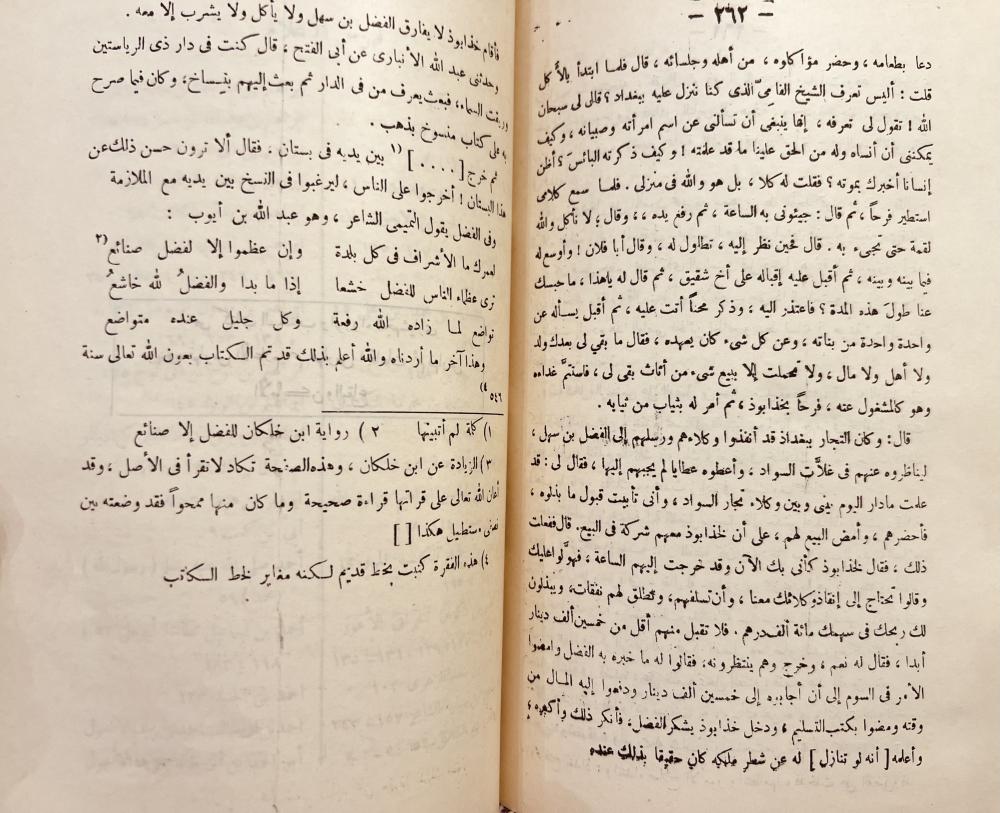 — ٢٦٢ —
دعا بطعامه ، وحضر مؤاكاوه ، من أهله وجلسائه ، قال فلما ابتدأ بالأكل
قلت : أليس تعرف الشيخ الفامي الذى كنا ننزل عليه ببغداد ؟ قالى لى سبحان
الله ! تقول لى تعرفه ، إنما ينبغى أن تسألنى عن اسم امرأته وصبيانه ، وكيف
يمكننى أن أنساه وله من الحق علينا ما قد علمته ! وكيف ذكرته البائس ؟ أظن
إنسانا أخبرك بموته ؟ فقلت له كلا ، بل هو والله فى منزلى . فلما سمع كلامى
استطير فرحاً ، ثم قال : جيئونى به الساعة ، ثم رفع يده ،، وقال ؛ لا نأكل والله
لقمة حتى تجىء به . قال فحين نظر إليه ، تطاول له ، وقال أبا فلان ! وأوسع له
فيما بينه وبينه ، ثم أقبل عليه إقباله على أخ شقيق ، ثم قال له ياهذا ، ما حبسك
عنا طول هذه المدة ؟ فاعتذر اليه ، وذكر محناً أتت عليه ، ثم أقبل يسأله عن
واحدة واحدة من بناته ، وعن كل شىء كان يعهده ، فقال ما بقي لى بعدك ولد
ولا أهل ولا مال ، ولا تحملت إلا ببيع شىء من أثاث بقى لى ، فاستتم غداءه
وهو كالمشغول عنه ، فرحاً بخذابوذ ، ثم أمر له بثياب من ثيابه .
قال : وكان التجار ببغداد قد أنفذوا وكلاءهم ورسلهم إلى الفضل بن سهل ،
ليناظروه عنهم فى غلاَّت السواد ، وأعطوه عطايا لم يجبهم إليها ، فقال لى : قد
علمت مادار اليوم بينى وبين وكلاء تجار السواد ، وأنى تأبيت قبول ما بذلوه ،
فأحضرهم ، وأمض البيع لهم ، على أن لخذابوذ معهم شركة فى البيع . قال ففعلت
ذلك ، فقال لخذابوذ كأنى بك الآن وقد خرجت إليهم الساعة ، فهوَّلوا عليك
وقالوا تحتاج إلى إنفاذ وكلائك معنا ، وأن تسلفهم ، وتطلق لهم نفقات ، ويبذلون
لك ربحك فى سهمك مائة ألف درهم . فلا تقبل منهم أقل من خمسين ألف دينار
أبدا ، فقال له نعم ، وخرج وهم ينتظرونه ، فقالوا له ما خبره به الفضل وامضوا
الأمر فى السوم إلى أن أجابره إلى خمسين ألف دينار ودفعوا إليه المال من
وقته ومضوا بكتب التسليم ، ودخل خذابوذ يشكر الفضل ، فأنكر ذلك وأكبره ،
وأعلمه [ أنه لو تنازل ] له عن شطر ملكه كان حقيقا بذلك عنده
فأقام خذابوذ لا يفارق الفضل بن سهل ولا يأكل ولا يشرب إلا معه .
وحدثنى عبد الله الأنبارى عن أبى الفتح ، قال كنت فى دار ذى الرياستين
السماء ، فبعث يعرف من فى الدار ثم بعث إليهم بنيساخ ، وكان فيما صرح
به على كتاب منسوخ بذهب .
ثم خرج [ .... ] (١ بين يديه فى بستان . فقال ألا ترون حسن ذلك عن
هذا البستان ! أخرجوا على الناس ، ليرغبوا فى النسخ بين يديه مع الملازمة
وفى الفضل يقول التميمى الشاعر ، وهو عبد الله بن أيوب :
لعمرك ما الأشراف فى كل بلدة وإن عظموا إلا لفضل صنائع (٢
ترى عظاء الناس للفضل خشعا إذا ما بدا والفضلُ لله خاشعُ
تواضع لما زاده الله رفعة وكل جليل عنده متواضع
وهذا آخر ما أردناه والله أعلم بذلك قد تم الكتاب بعون الله تعالى سنة
٥٤٦ (٤
١) كلمة لم أتبينها ٢ ) رواية ابن خلكان للفضل إلا صنائع
٣) الزيادة عن ابن خلكان ، وهذه الصفحة تكاد لا تقرأ فى الأصل ، وقد
أعان الله تعالى على قراءتها قراءة صحيحة وما كان منها ممحواً فقد وضعته بين
مستطيل هكذا [ ]
٤) هذه الفقرة كتبت بخط قديم لكنه مغاير لخط الكتاب .